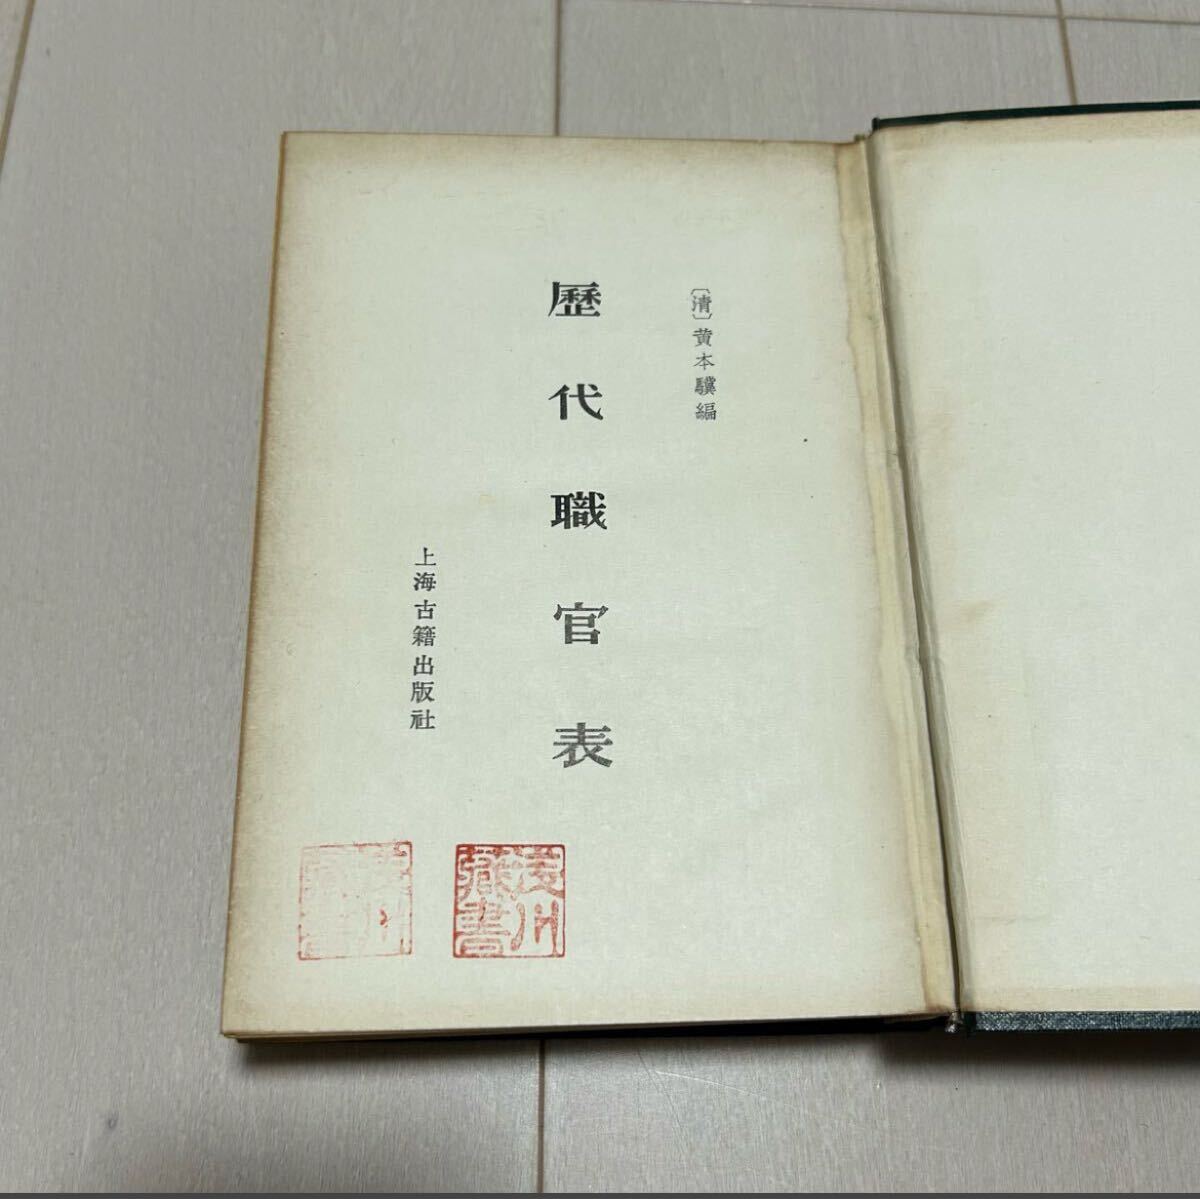 〔清〕黄本驥編
歷代職官表
上海古籍出版社
川
藏書